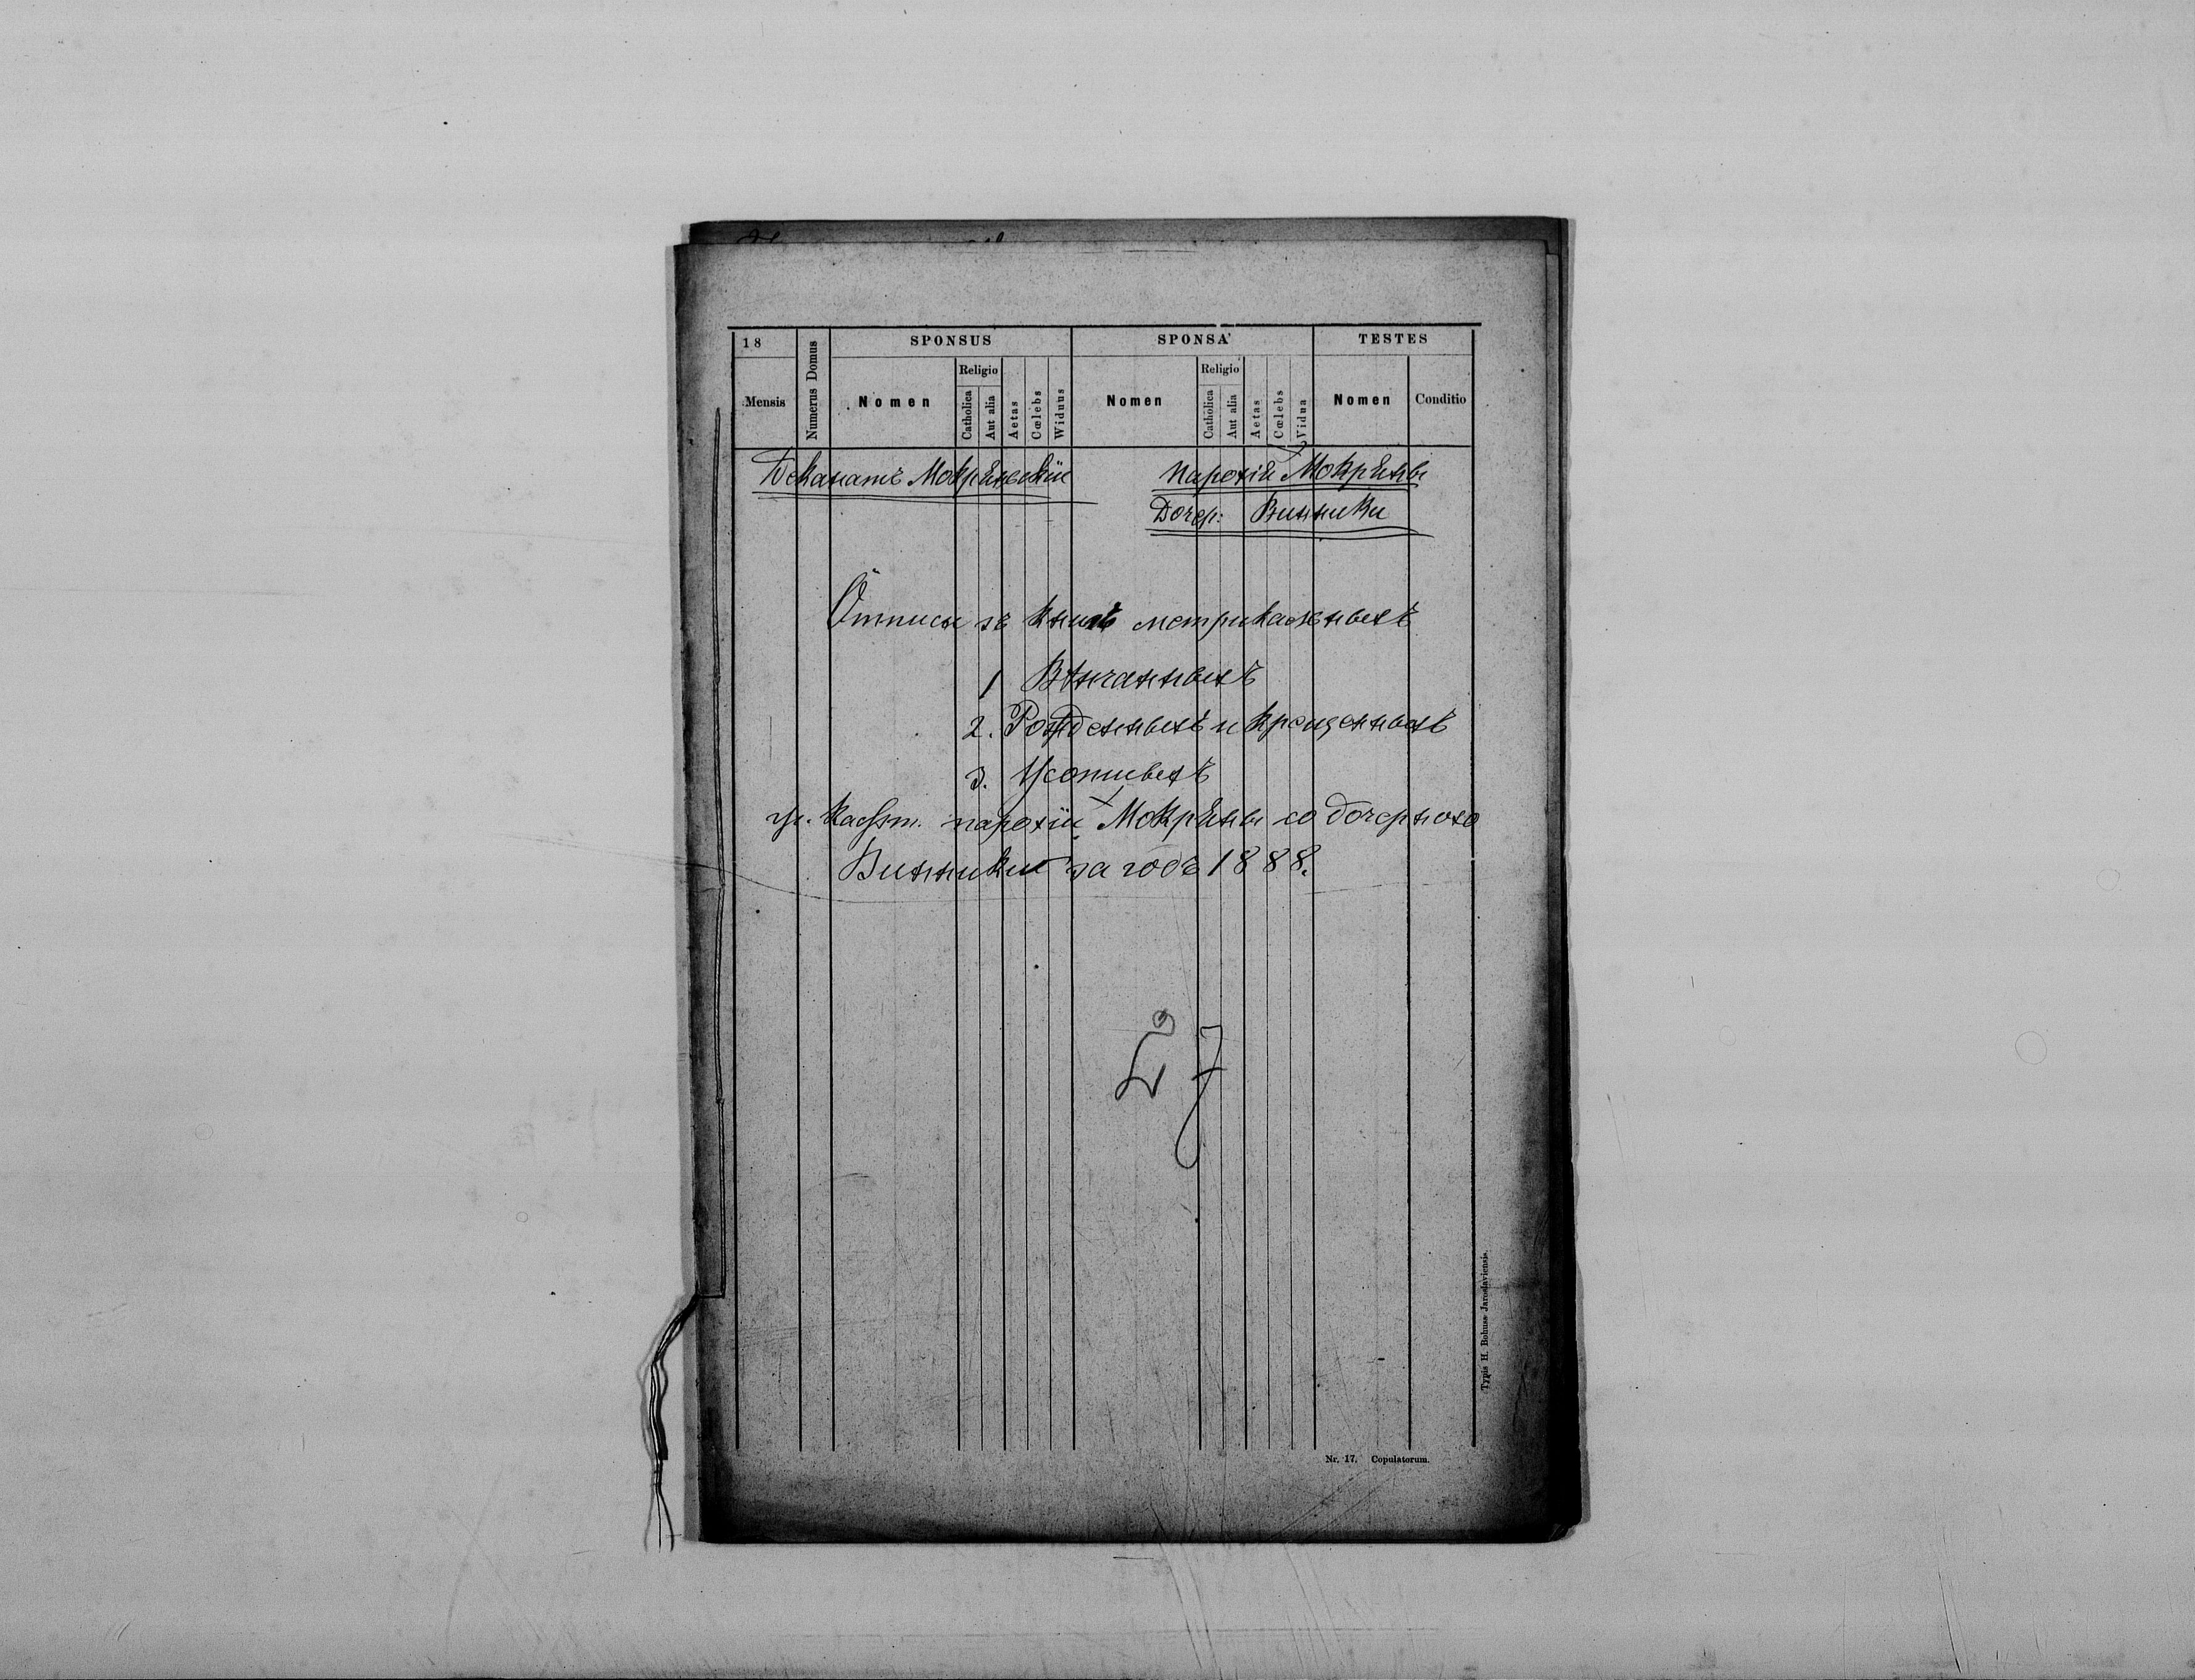 18
SPONSUS
SPONSA
TESTES
Mensis
Numerus Domus
Nomen
Religio
Catholica
Aut alia
Aetas
Cœlebs
Widuus
Nomen
Religio
Catholica
Aut alia
Aetas
Cœlebs
Vidua
Nomen
Conditio
Деканатъ Мокрянскій
Парохія Мокряны
Дочер: Винники
Отписы зъ книгъ метрикальныхъ
1 Вѣнчанныхъ
2. Рожденныхъ и крещенныхъ
3. Усопшихъ
гр. каѳол. парохіи Мокряны со дочерною
Винники за годъ 1888.
Typis H. Bohuss Jaroslaviensis.
Nr. 17. Copulatorum.